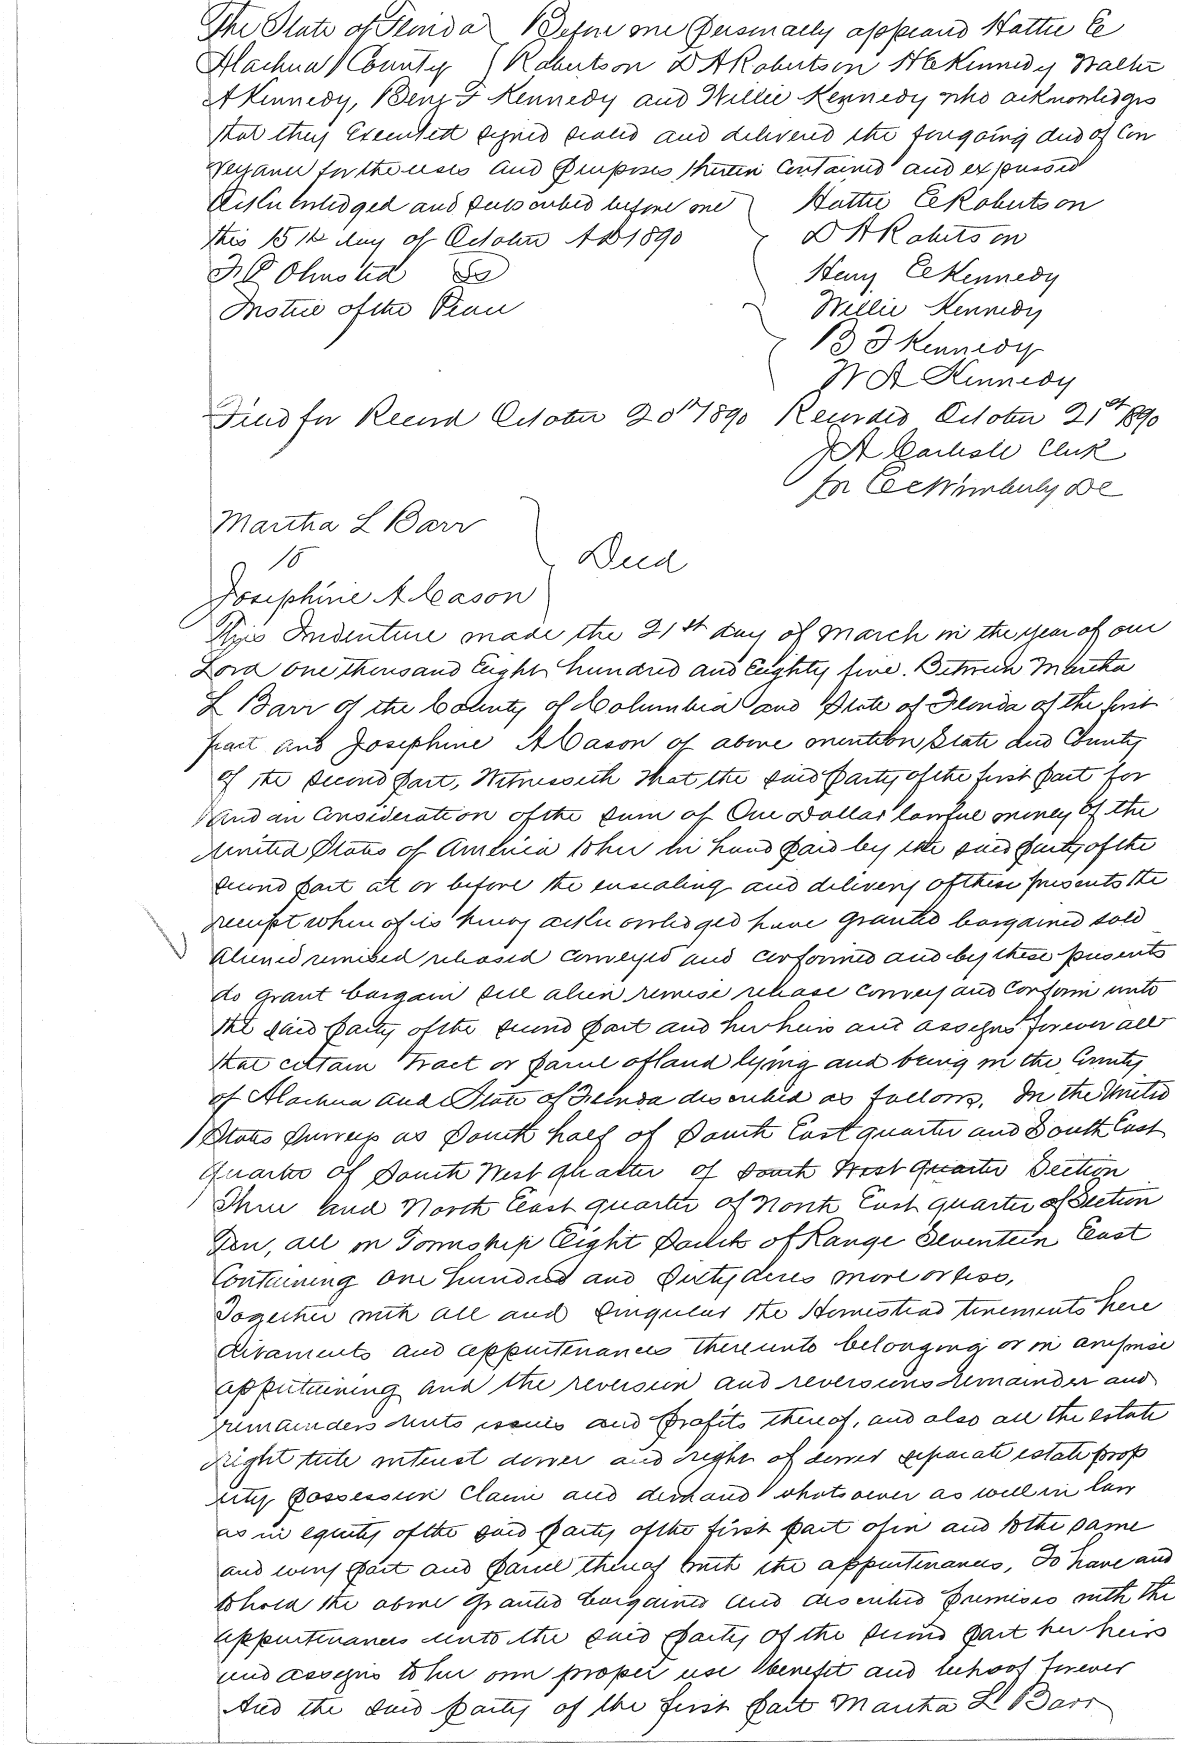 The State of Florida } Before me personally appeared Hattie E
Alachua County } Robertson D A Robertson H E Kennedy Walter
A Kennedy, Benj F Kennedy and Willie Kennedy who acknowledges
that they Executed signed sealed and delivered the forgoing deed of Con
veyance for the uses and purposes therein contained and expressed
Acknowledged and subscribed before me } Hattie E Robertson
this 15th day of October AD 1890 } D A Robertson
Olmsted Henry E Kennedy
Justice of the Peace } Willie Kennedy
B F Kennedy
W A Kennedy
Filed for Record October 20th 1890 Recorded October 21st 1890
J A Carlisle Clerk
for E C Wimberly DC
Martha L Barr
to } Deed
Josephine A Cason
This Indenture made the 21st day of March in the year of our
Lord one thousand Eight hundred and Eighty five. Between Martha
L Barr of the County of Columbia and State of Florida of the first
part and Josephine A Cason of above mention State and County
of the second part, Witnesseth that the said party of the first part for
and an Consideration of the sum of One Dollar lawful money of the
United States of America to her in hand paid by the said party of the
second part at or before the ensealing and delivery of these presents the
receipt when of is hereby acknowledged have granted bargained sold
aliened remised released conveyed and conformed and by these presents
do grant bargain sell alien remise release convey and conform unto
the said party of the second part and her heirs and assigns forever all
that certain Tract or parcel of land lying and being in the County
of Alachua and State of Florida described as follows, In the United
States Surveys as South half of South East quarter and South East
quarter of South West quarter of south West quarter Section
Three and North East quarter of North East quarter of Section
Ten, all in Township Eight South of Range Seventeen East
Containing one hundred and sixty acres more or less,
Together with all and singular the Homestead tenements here
ditaments and appurtenances thereunto belonging or in anywise
appertaining and the reversion and reversions remainder and
remainders rents issues and profits thereof, and also all the estate
right title interest dower and right of dower separate estate prop
erty possession claim and demand whatsoever as well in law
as in equity of the said party of the first part of in and to the same
and every part and parcel thereof with the appurtenances, To have and
to hold the above granted bargained and described premises with the
appurtenances unto the said party of the second part her heirs
and assigns to her own proper use benefit and behoof forever
And the said party of the first part Martha L Barr